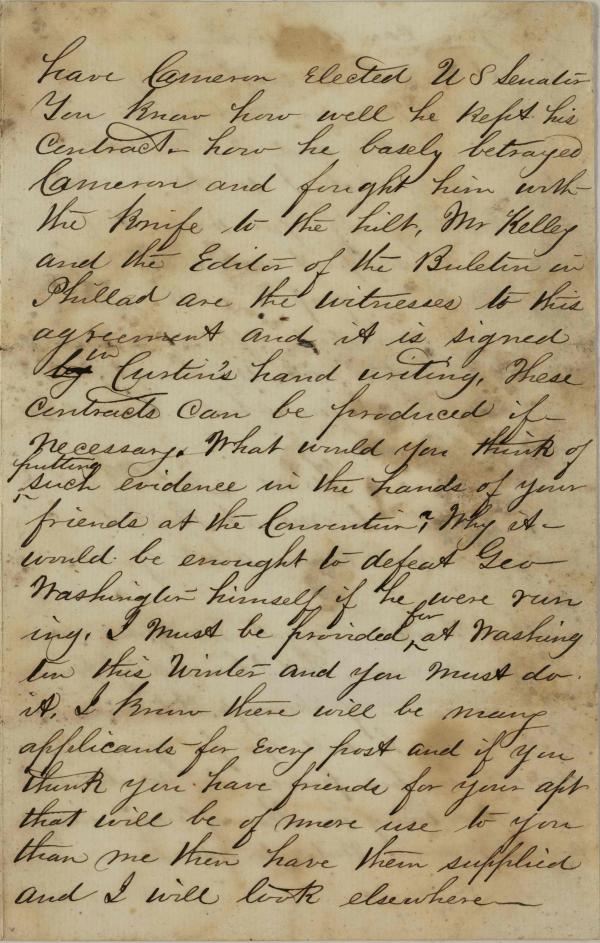 have Cameron Elected U S Senator
You Know how well he Kept his
Contract- how he basely betrayed
Cameron and fought him with
the Knife to the hilt, Mr Kelley
and the Editor of the Buletin in
Phillad are the witnesses to this
agreement and it is signed
by in Curtin's hand writing. These
contracts can be produced if
necessary. What would you think of
putting such evidence in the hands of your
friends at the Convention? Why it
would be enought to defeat Geo
Washington himself if he were run
ing. I Must be provided for at Washing
ton this Winter and you Must do
it. I Know there will be many
applicants for Every post and if you
think you have friends for your apt
that will be of more use to you
than me then have them supplied
and I will look elsewhere